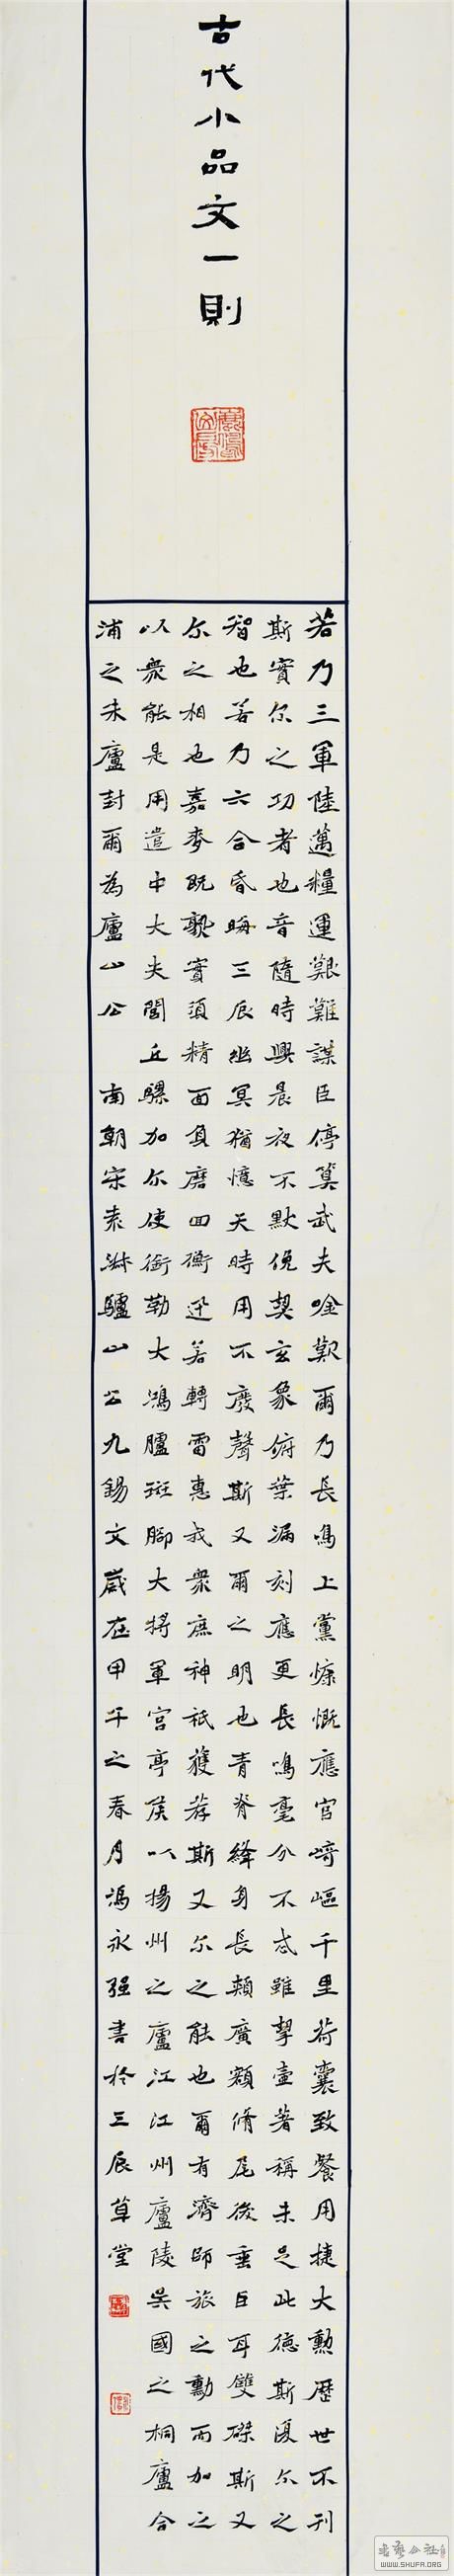 古代小品文一則
若乃三軍陸邁糧運艱難謀臣停筭武夫唫歎爾乃長鳴上黨慷慨應官崎嶇千里荷囊致餐用捷大勲歷世不刊
斯實尔之功者也音隨時興晨夜不默俛契玄象俯葉漏刻應更長鳴毫分不忒雖挈壺著稱未足比德斯復尔之
智也若乃六合昏晦三辰幽冥猶憶天時用不廢聲斯又爾之明也青脊絳身長頰廣額脩尾後垂巨耳雙磔斯又
尔之相也嘉麥既熟實須精面負磨回衡迅若轉雷惠我衆庶神祇獲荐斯又尔之能也爾有濟師旅之勳而加之
以衆能是用遣中大夫閭丘騾加尔使銜勒大鴻臚斑腳大將軍宮亭侯以揚州之廬江江州廬陵吳國之桐廬合
浦之朱廬封爾為廬山公 南朝宋袁淋驢山公九錫文歲在甲午之春月馮永强書於三辰草堂
書藝公社
WWW.SHUFA.ORG